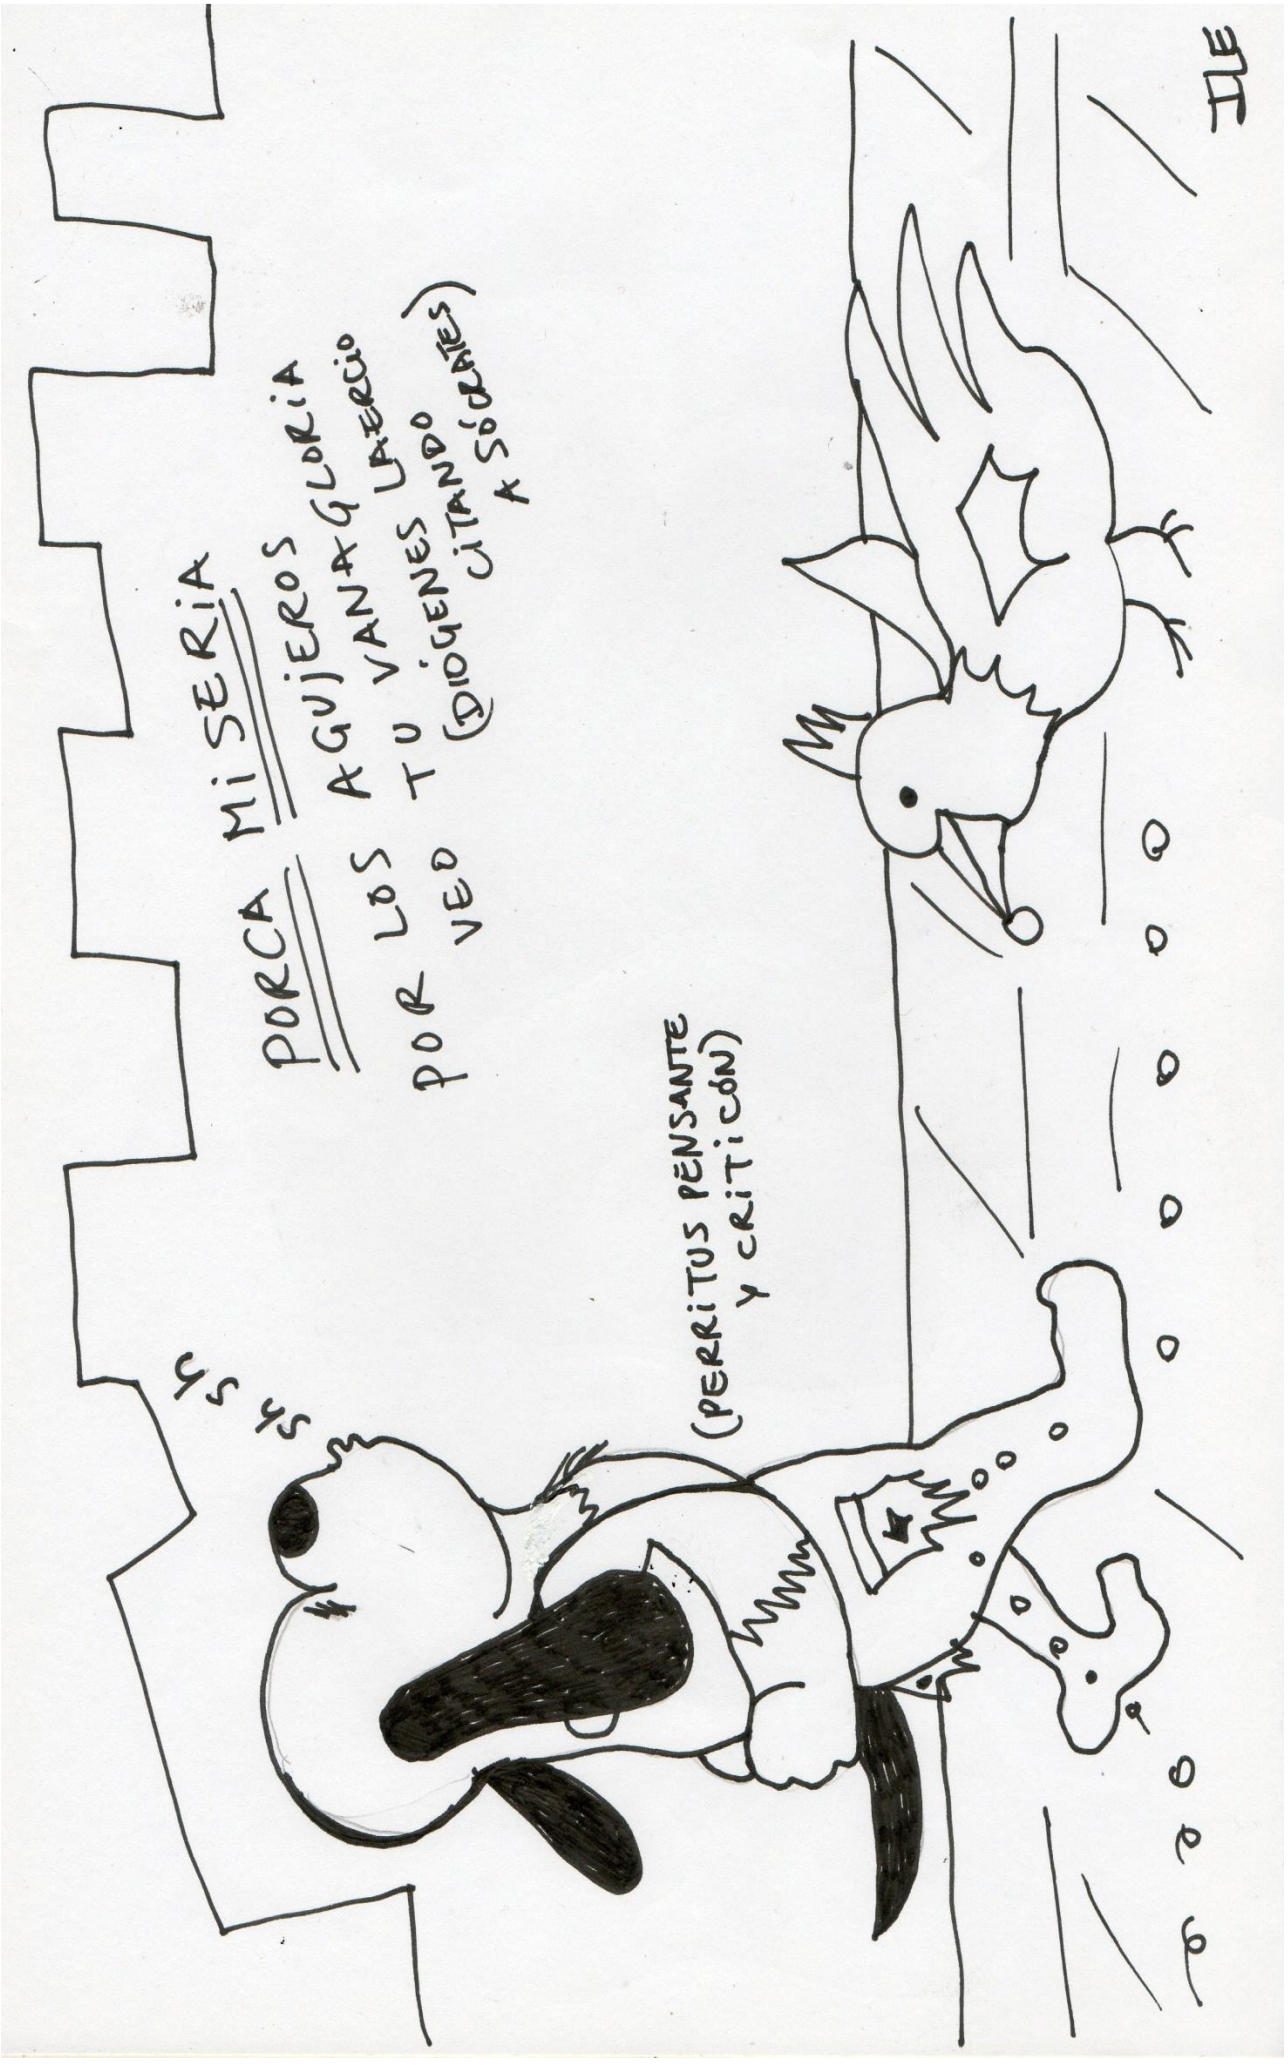 sh sh
PORCA MiSERiA
POR LOS AGUJEROS
VEO TU VANAGLORiA
(DiÓGENES LAERCiO
CiTANDO
A SÓCRATES)
(PERRiTUS PENSANTE
Y CRiTiCÓN)
ILE